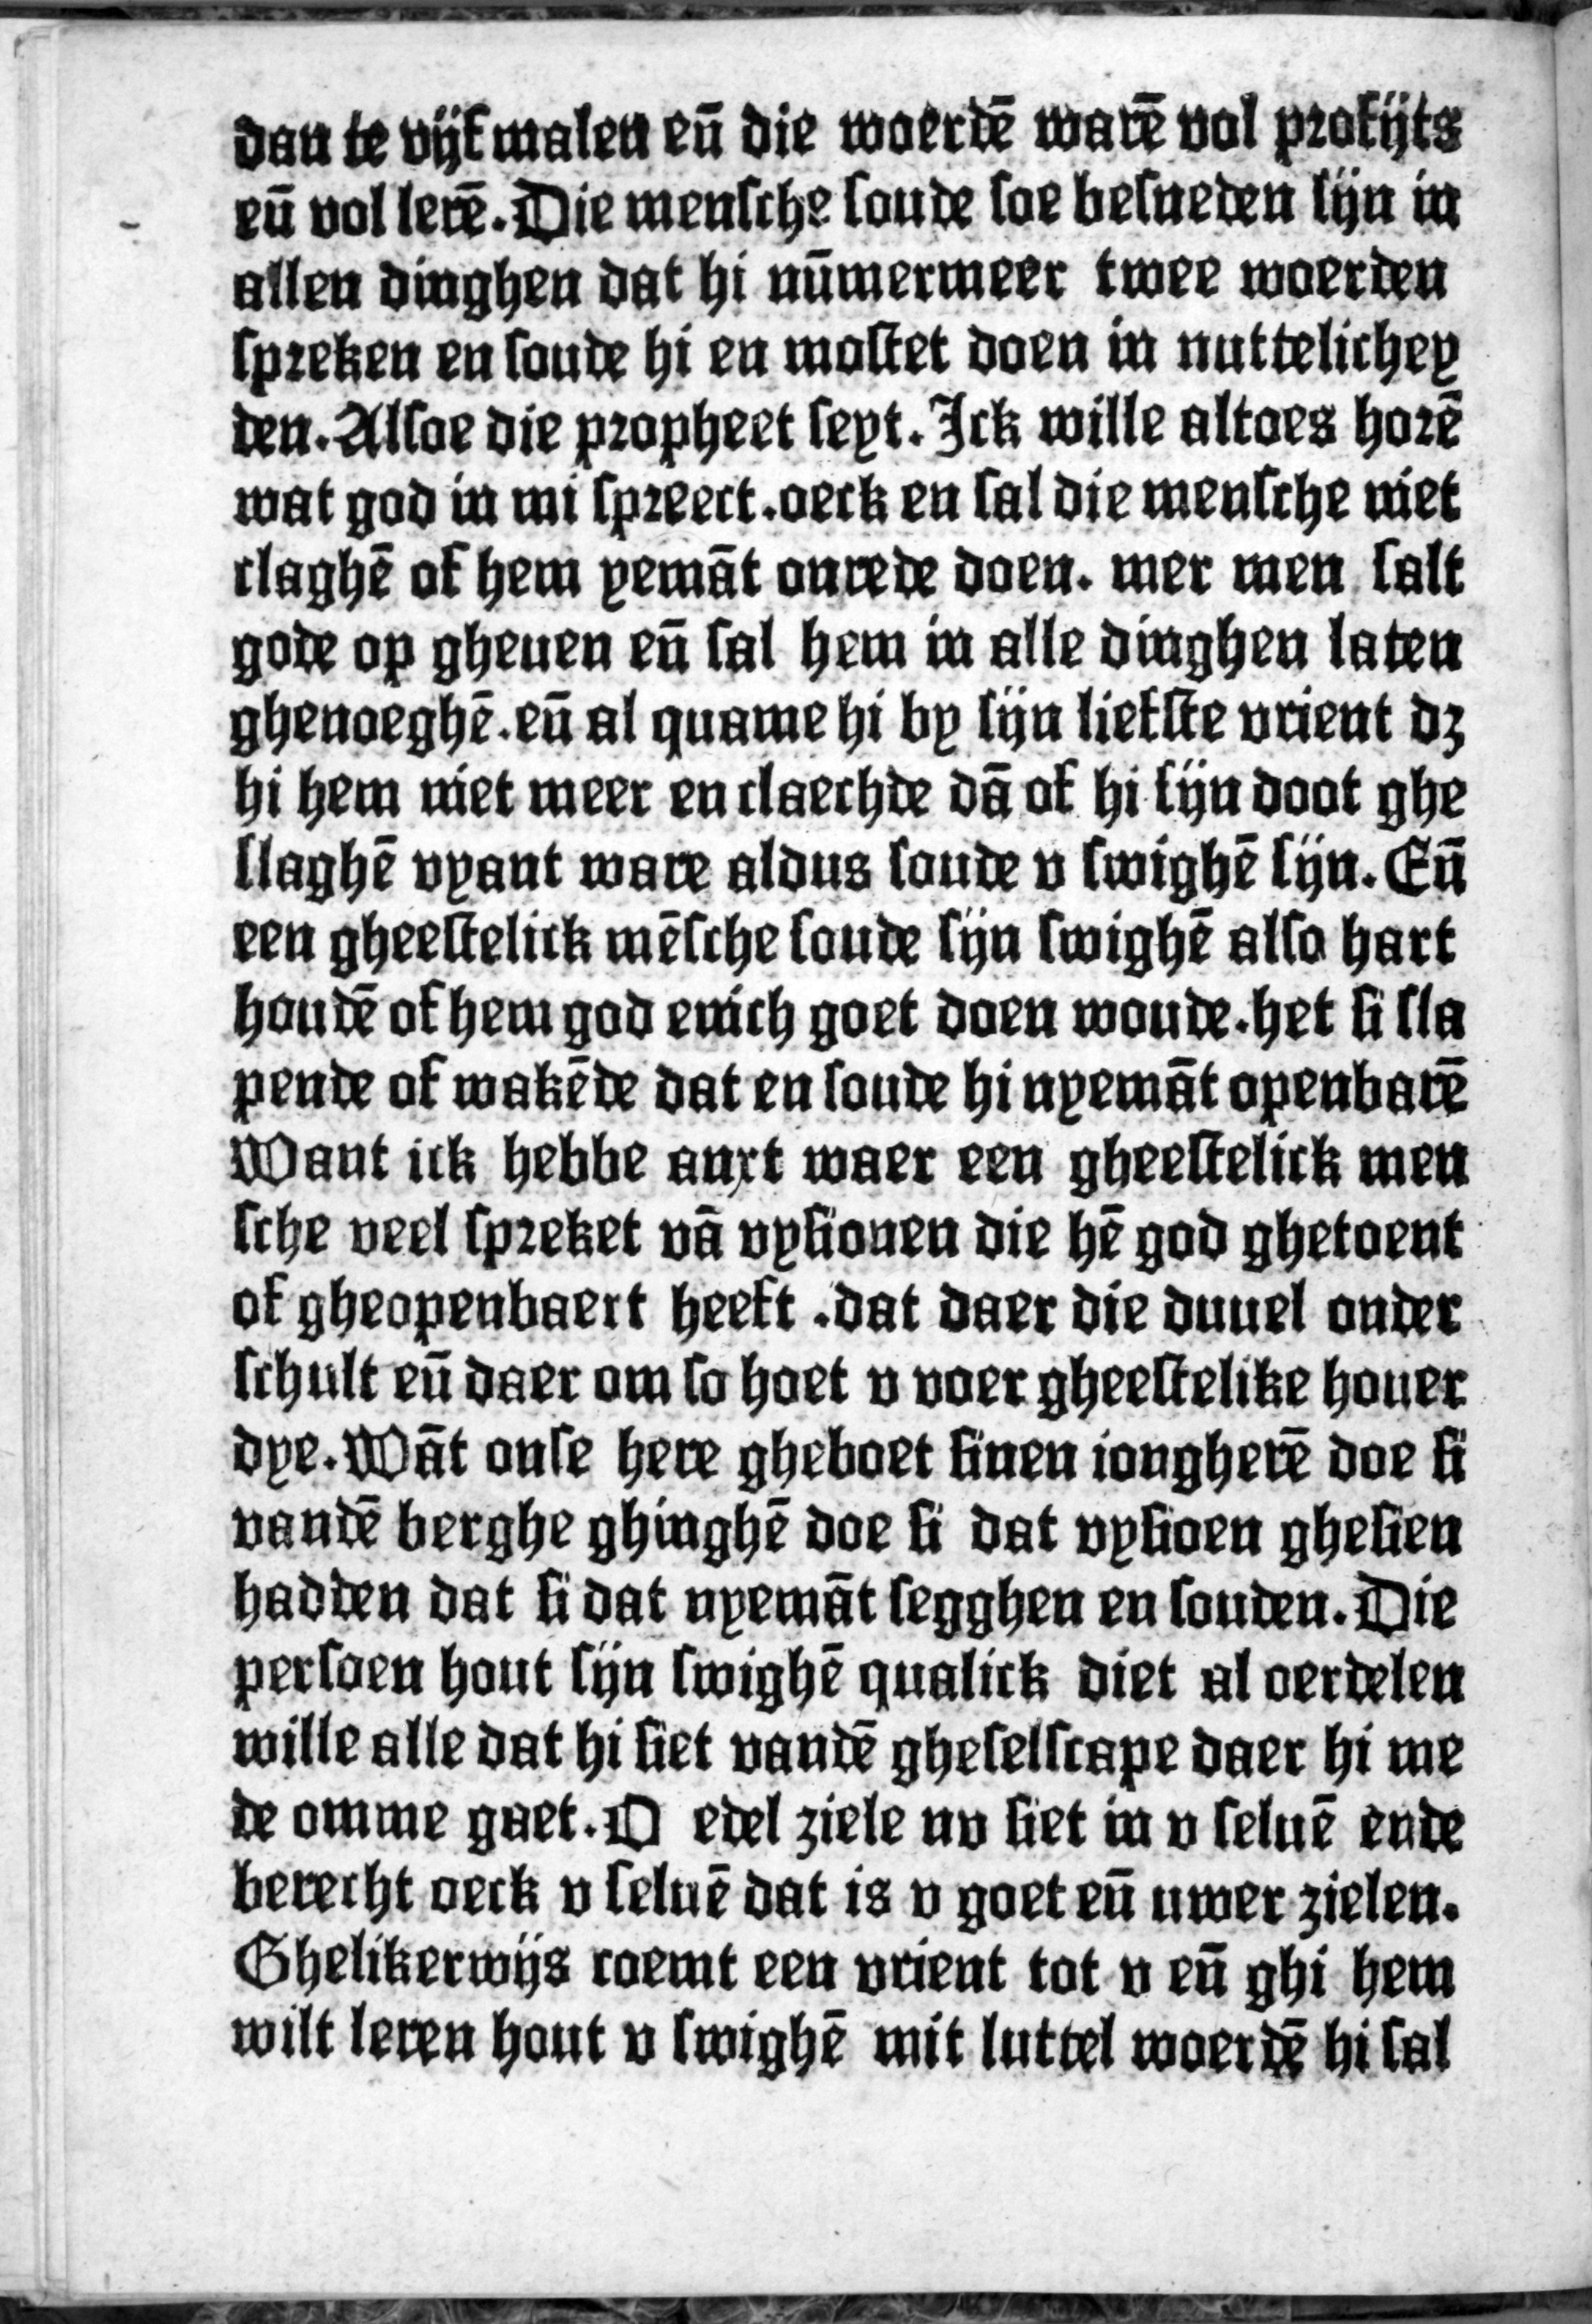 dan te vijf malen eñ die woerdē warē vol profijts
eñ vol lerē. Die mensche soude soe besneden sijn in
allen dinghen dat hi nūmermeer twee woerden
spreken en soude hi en mostet doen in nuttelichey
den. Alsoe die propheet seyt. Ick wille altoes horē
wat god in mi spreect. oeck en sal die mensche niet
claghē of hem yemāt onrede doen. mer men salt
gode op gheuen eñ sal hem in alle dinghen laten
ghenoeghē. eñ al quame hi by sijn liefste vrient dz
hi hem niet meer en claechde dā of hi sijn doot ghe
slaghē vyant ware aldus soude v swighē sijn. Eñ
een gheestelick mēsche soude sijn swighē also hart
houdē of hem god enich goet doen woude. het si sla
pende of wakēde dat en soude hi nyemāt openbarē
Want ick hebbe anxt waer een gheestelick men
sche veel spreket vā vysionen die hē god ghetoent
of gheopenbaert heeft .dat daer die duuel onder
schult eñ daer om so hoet v voer gheestelike houer
dye. Wāt onse here gheboet sinen iongherē doe si
vandē berghe ghinghē doe si dat vysioen ghesien
hadden dat si dat nyemāt segghen en souden. Die
persoen hout sijn swighē qualick diet al oerdelen
wille alle dat hi siet vandē gheselscape daer hi me
de omme gaet. O edel ziele nv siet in v seluē ende
berecht oeck v seluē dat is v goet eñ uwer zielen.
Ghelikerwijs coemt een vrient tot v eñ ghi hem
wilt leren hout v swighē mit luttel woerdē hi sal